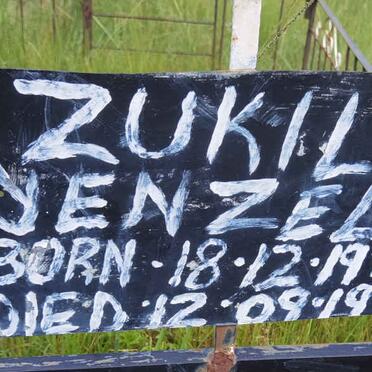 ZUKIL
YENZEL
BORN · 18 · 12 · 19
DIED · 12 · 09 · 19